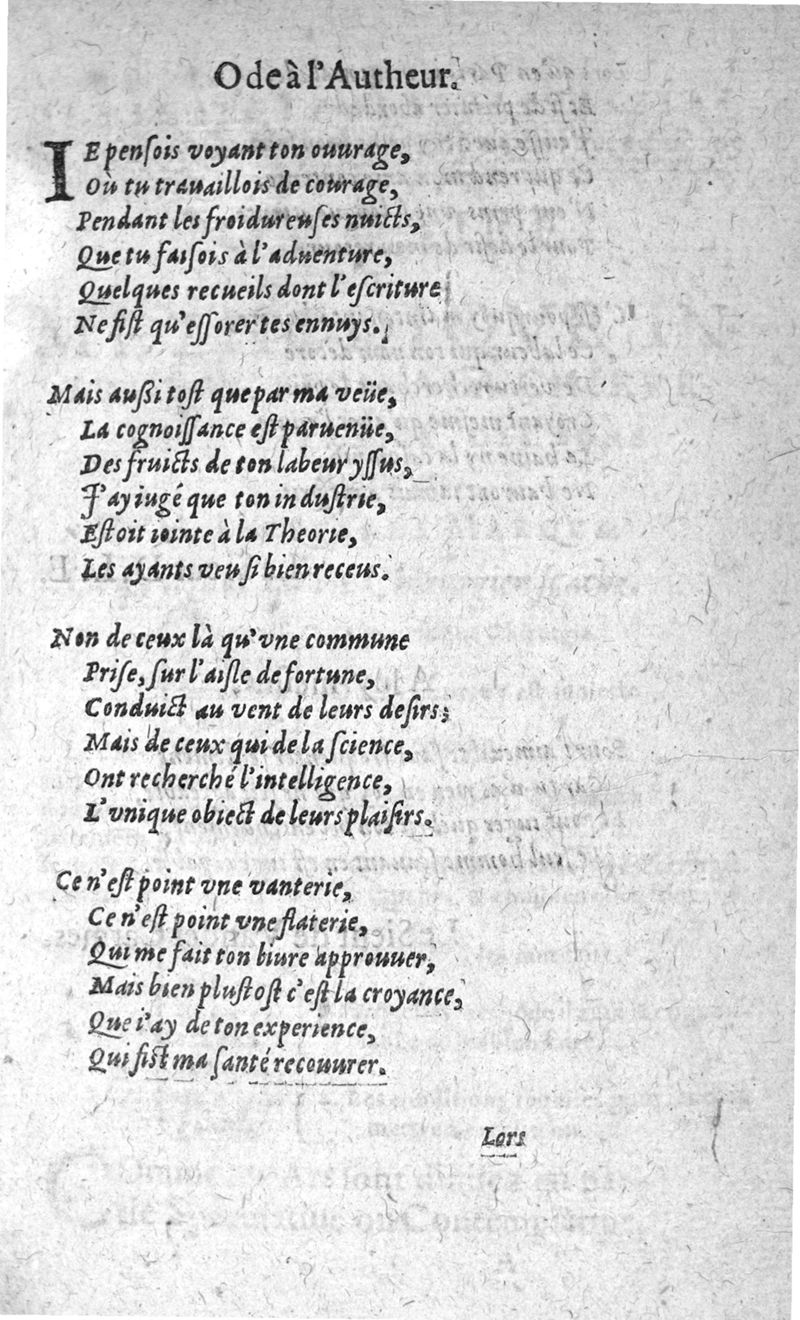 Ode à l'Autheur.
IE pensois voyant ton ouurage,
Où tu trauaillois de courage,
Pendant les froidureuses nuicts,
Que tu faisois à l'aduenture,
Quelques recueils dont l'escriture
Ne fist qu'essorer tes ennuys.
Mais außi tost que par ma veüe,
La cognoissance est paruenüe,
Des fruicts de ton labeur yssus,
J'ay iugé que ton industrie,
Estoit iointe à la Theorie,
Les ayants veu si bien receus.
Non de ceux là qu'vne commune
Prise, sur l'aisle de fortune,
Conduict au vent de leurs desirs;
Mais de ceux qui de la science,
Ont recherché l'intelligence,
L'vnique obiect de leurs plaisirs.
Ce n'est point vne vanterie,
Ce n'est point vne flaterie,
Qui me fait ton liure approuuer,
Mais bien plustost c'est la croyance,
Que i'ay de ton experience,
Qui fist ma santé recouurer.
Lors